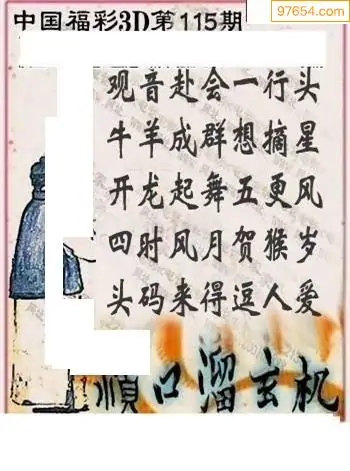 97654.com
中国福彩3D第115期
观音赴会一行头
牛羊成群想摘星
开龙起舞五更风
四时风月贺猴岁
头码来得逗人爱
顺口溜玄机